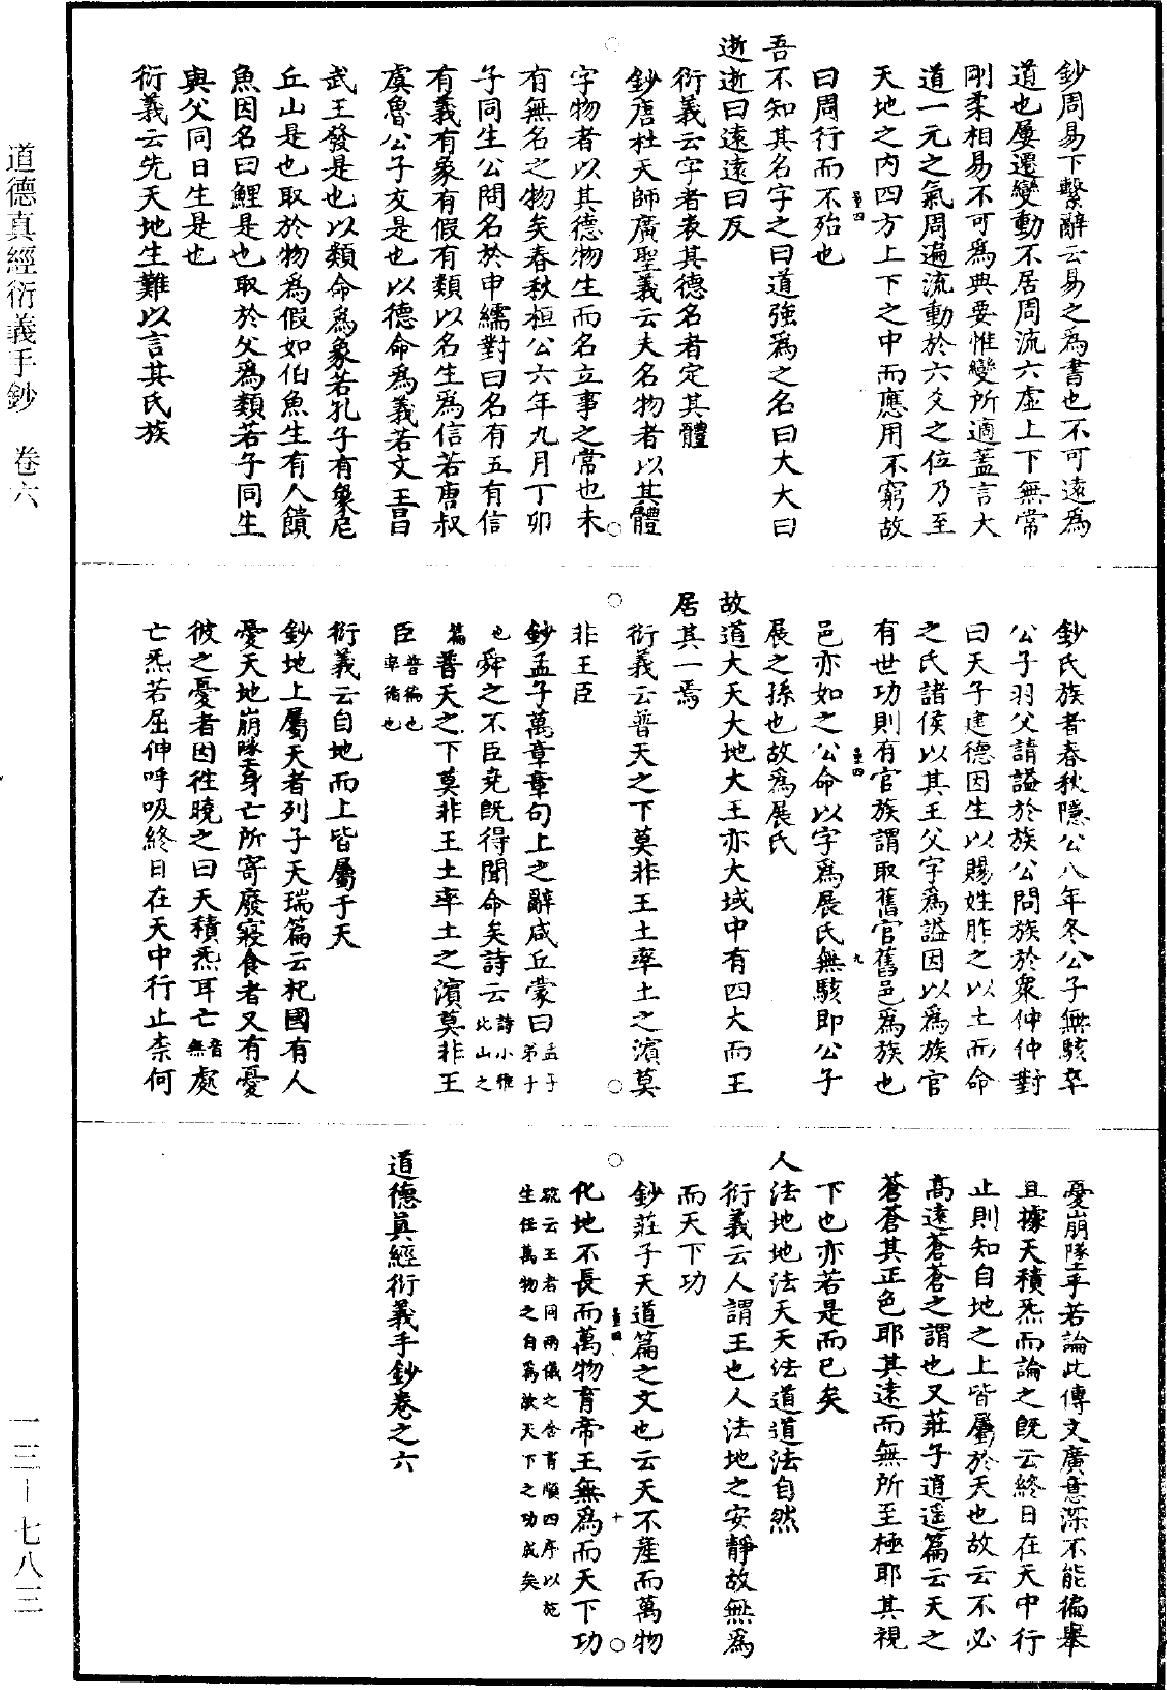 鈔周易下繫辭云易之爲書也不可遠爲
道也屢遷變動不居周流六虛上下無常
剛柔相易不可爲典要惟變所適蓋言大
道一元之氣周遍流動於六爻之位乃至
天地之内四方上下之中而應用不窮故
曰周行而不殆也
吾不知其名字之曰道強爲之名曰大大曰
逝逝曰遠遠曰反
衍義云字者表其德名者定其體
鈔唐杜天師廣聖義云夫名物者以其體
字物者以其德物生而名立事之常也未
有無名之物矣春秋桓公六年九月丁卯
子同生公問名於申繻對曰名有五有信
有義有象有假有類以名生爲信若唐叔
虞魯公子友是也以德命爲義若文王昌
武王發是也以類命爲象若孔子有象尼
丘山是也取於物爲假如伯魚生有人饋
魚因名曰鯉是也取於父爲類若子同生
與父同日生是也
衍義云先天地生難以言其氏族
鈔氏族者春秋隱公八年冬公子無駭卒
公子羽父請謚於族公問族於衆仲仲對
曰天子建德因生以賜姓胙之以土而命
之氏諸侯以其王父字爲謚因以爲族官
有世功則有官族謂取舊官舊邑爲族也
邑亦如之公命以字爲展氏無駭即公子
展之孫也故爲展氏
故道大天大地大王亦大域中有四大而王
居其一焉
衍義云普天之下莫非王土率土之濱莫
非王臣
鈔孟子萬章章句上之辭咸丘蒙曰孟子弟子
也舜之不臣堯既得聞命矣詩云詩小雅北山之
篇普天之下莫非王土率土之濱莫非王
臣普徧也率循也
衍義云自地而上皆屬于天
鈔地上屬天者列子天瑞篇云杞國有人
憂天地崩墜身亡所寄廢寢食者又有憂
彼之憂者因往曉之曰天積炁耳亡音無處
亡炁若屈伸呼吸終日在天中行止柰何
憂崩墜乎若論此傳文廣意深不能徧舉
且據天積炁而論之既云終日在天中行
止則知自地之上皆屬於天也故云不必
高遠蒼蒼之謂也又莊子逍遥篇云天之
蒼蒼其正色耶其遠而無所至極耶其視
下也亦若是而已矣
人法地地法天天法道道法自然
衍義云人謂王也人法地之安靜故無爲
而天下功
鈔莊子天道篇之文也云天不產而萬物
化地不長而萬物育帝王無爲而天下功
疏云王者同兩儀之含育順四序以施
生任萬物之自爲故天下之功成矣
道德眞經衍義手鈔卷之六
道德真經衍義手鈔　卷六
一三－七八三